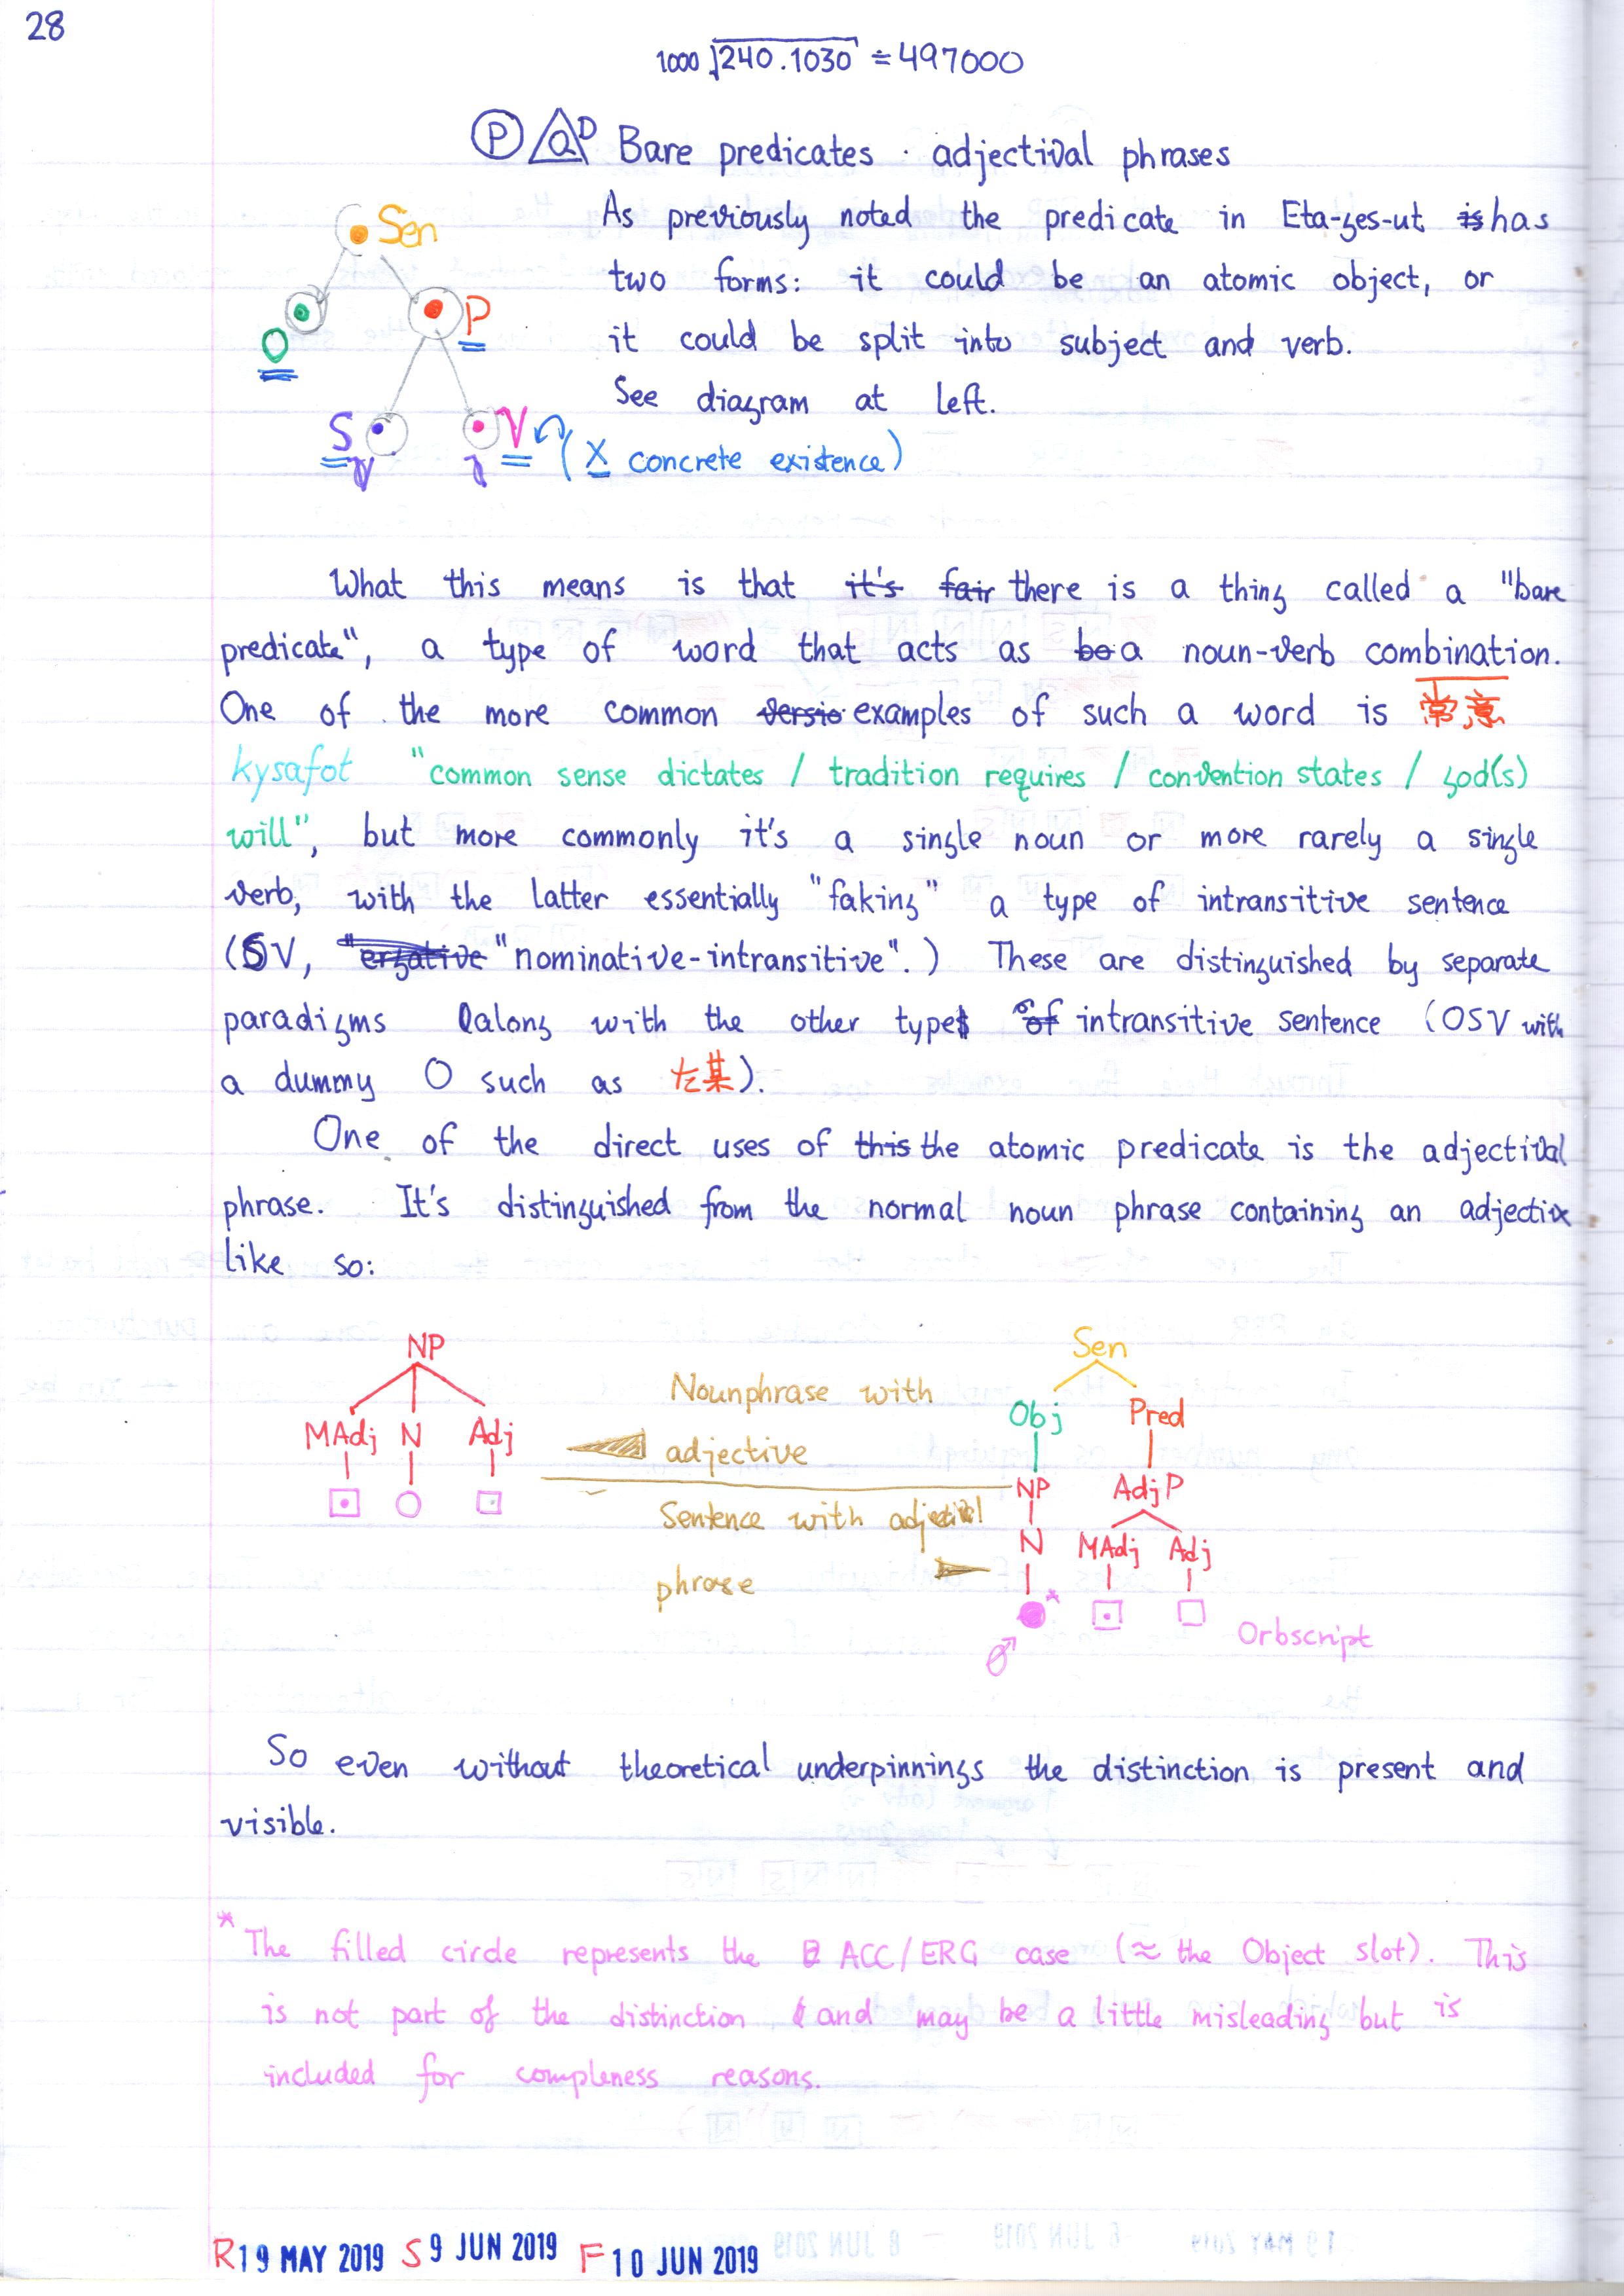 28
1000 √240.1030 ≐ 497000
P Q D Bare predicates · adjectival phrases
As previously noted the predicate in Eta-ges-ut is has
two forms: it could be an atomic object, or
it could be split into subject and verb.
See diagram at left.
Sen
O P
S V (X concrete existence)
What this means is that it's fair there is a thing called a "bare
predicate", a type of word that acts as be a noun-verb combination.
One of the more common versio examples of such a word is 常意
kysafot "common sense dictates / tradition requires / convention states / god(s)
will", but more commonly it's a single noun or more rarely a single
verb, with the latter essentially "faking" a type of intransitive sentence
(SV, "ergative "nominative-intransitive".) These are distinguished by separate
paradigms (along with the other types of intransitive sentence (OSV with
a dummy O such as 某).
One of the direct uses of this the atomic predicate is the adjectival
phrase. It's distinguished from the normal noun phrase containing an adjective
like so:
NP
MAdj N Adj
Nounphrase with
adjective
Sentence with adjectival
phrase
Sen
Obj Pred
NP AdjP
N MAdj Adj
*
Orbscript
So even without theoretical underpinnings the distinction is present and
visible.
* The filled circle represents the ACC/ERG case (≈ the Object slot). This
is not part of the distinction and may be a little misleading but is
included for compleness reasons.
R 19 MAY 2019 S 9 JUN 2019 F 10 JUN 2019